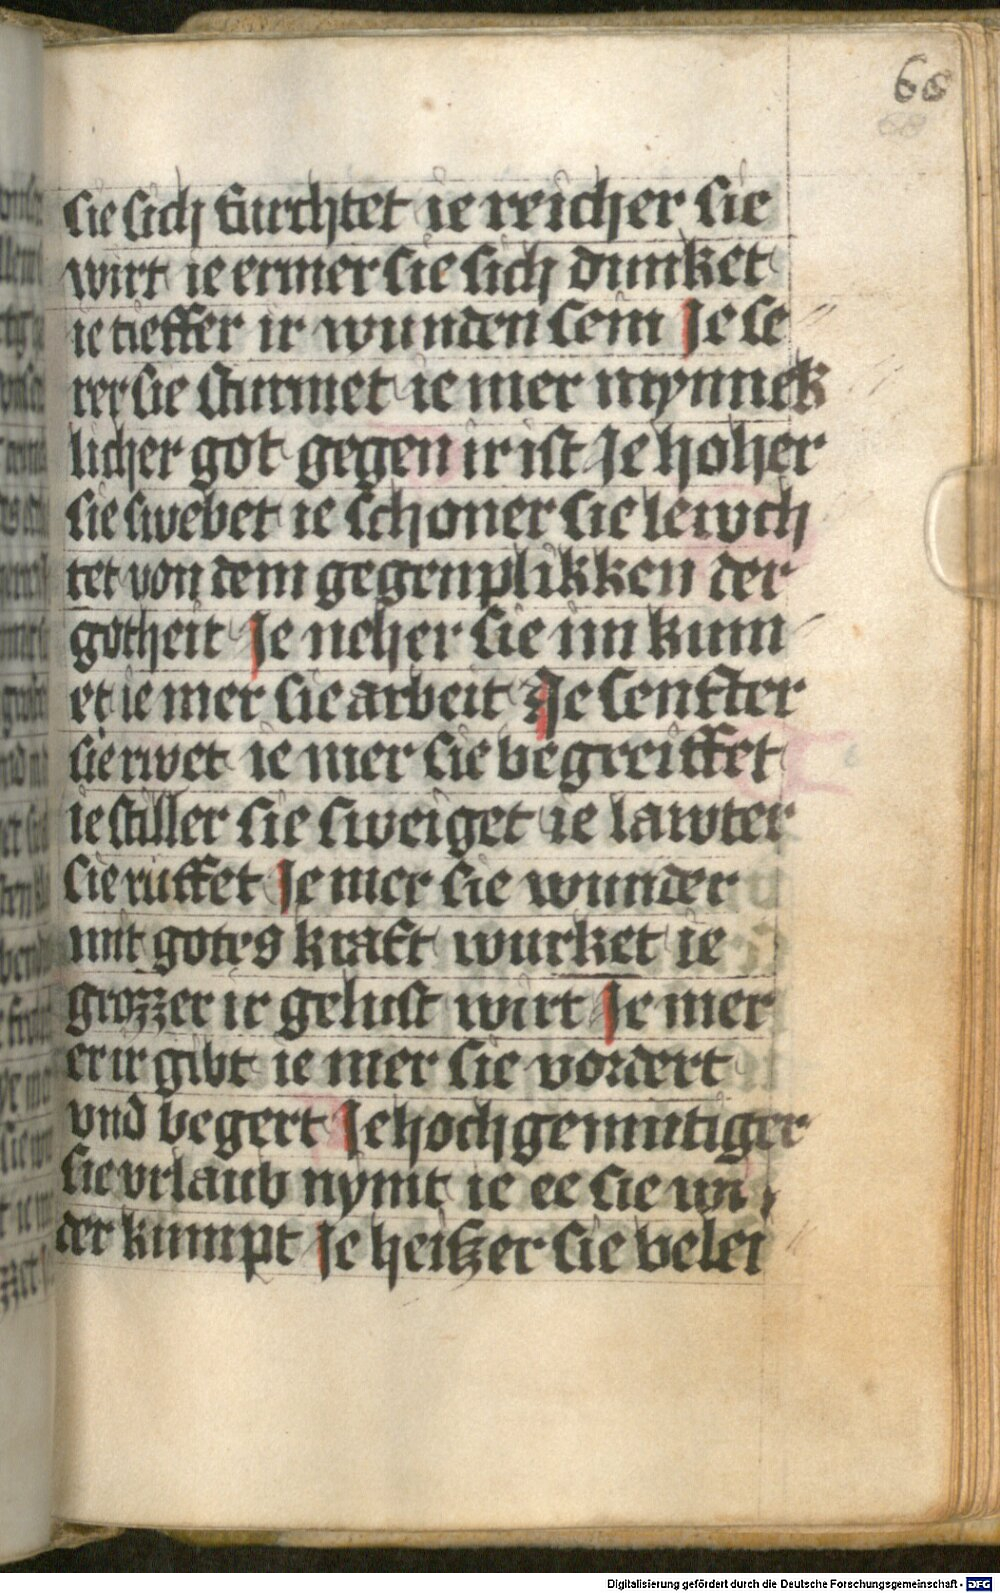 66
68
sie sich furchtet ie reicher sie
wirt ie ermer sie sich dunket
ie tieffer ir wunden sein Je se
rer sie sturmet ie mer mynnek
licher got gegen ir ist Je hoher
sie swebet ie schoner sie lewch
tet von dem gegenplikken der
gotheit Je neher sie im kum
et ie mer sie arbeit Je senfter
sie rwet ie mer sie begreiffet
ie stiller sie sweiget ie lawter
sie ruffet Je mer sie wunder
mit gotes kraft wurket ie
grozzer ir gelust wirt Je mer
er ir gibt ie mer sie vordert
vnd begert Je hochgemutiger
sie vrlaub nymt ie ee sie wi
der kumpt Je heitzer sie belei
Digitalisierung gefördert durch die Deutsche Forschungsgemeinschaft - DFG